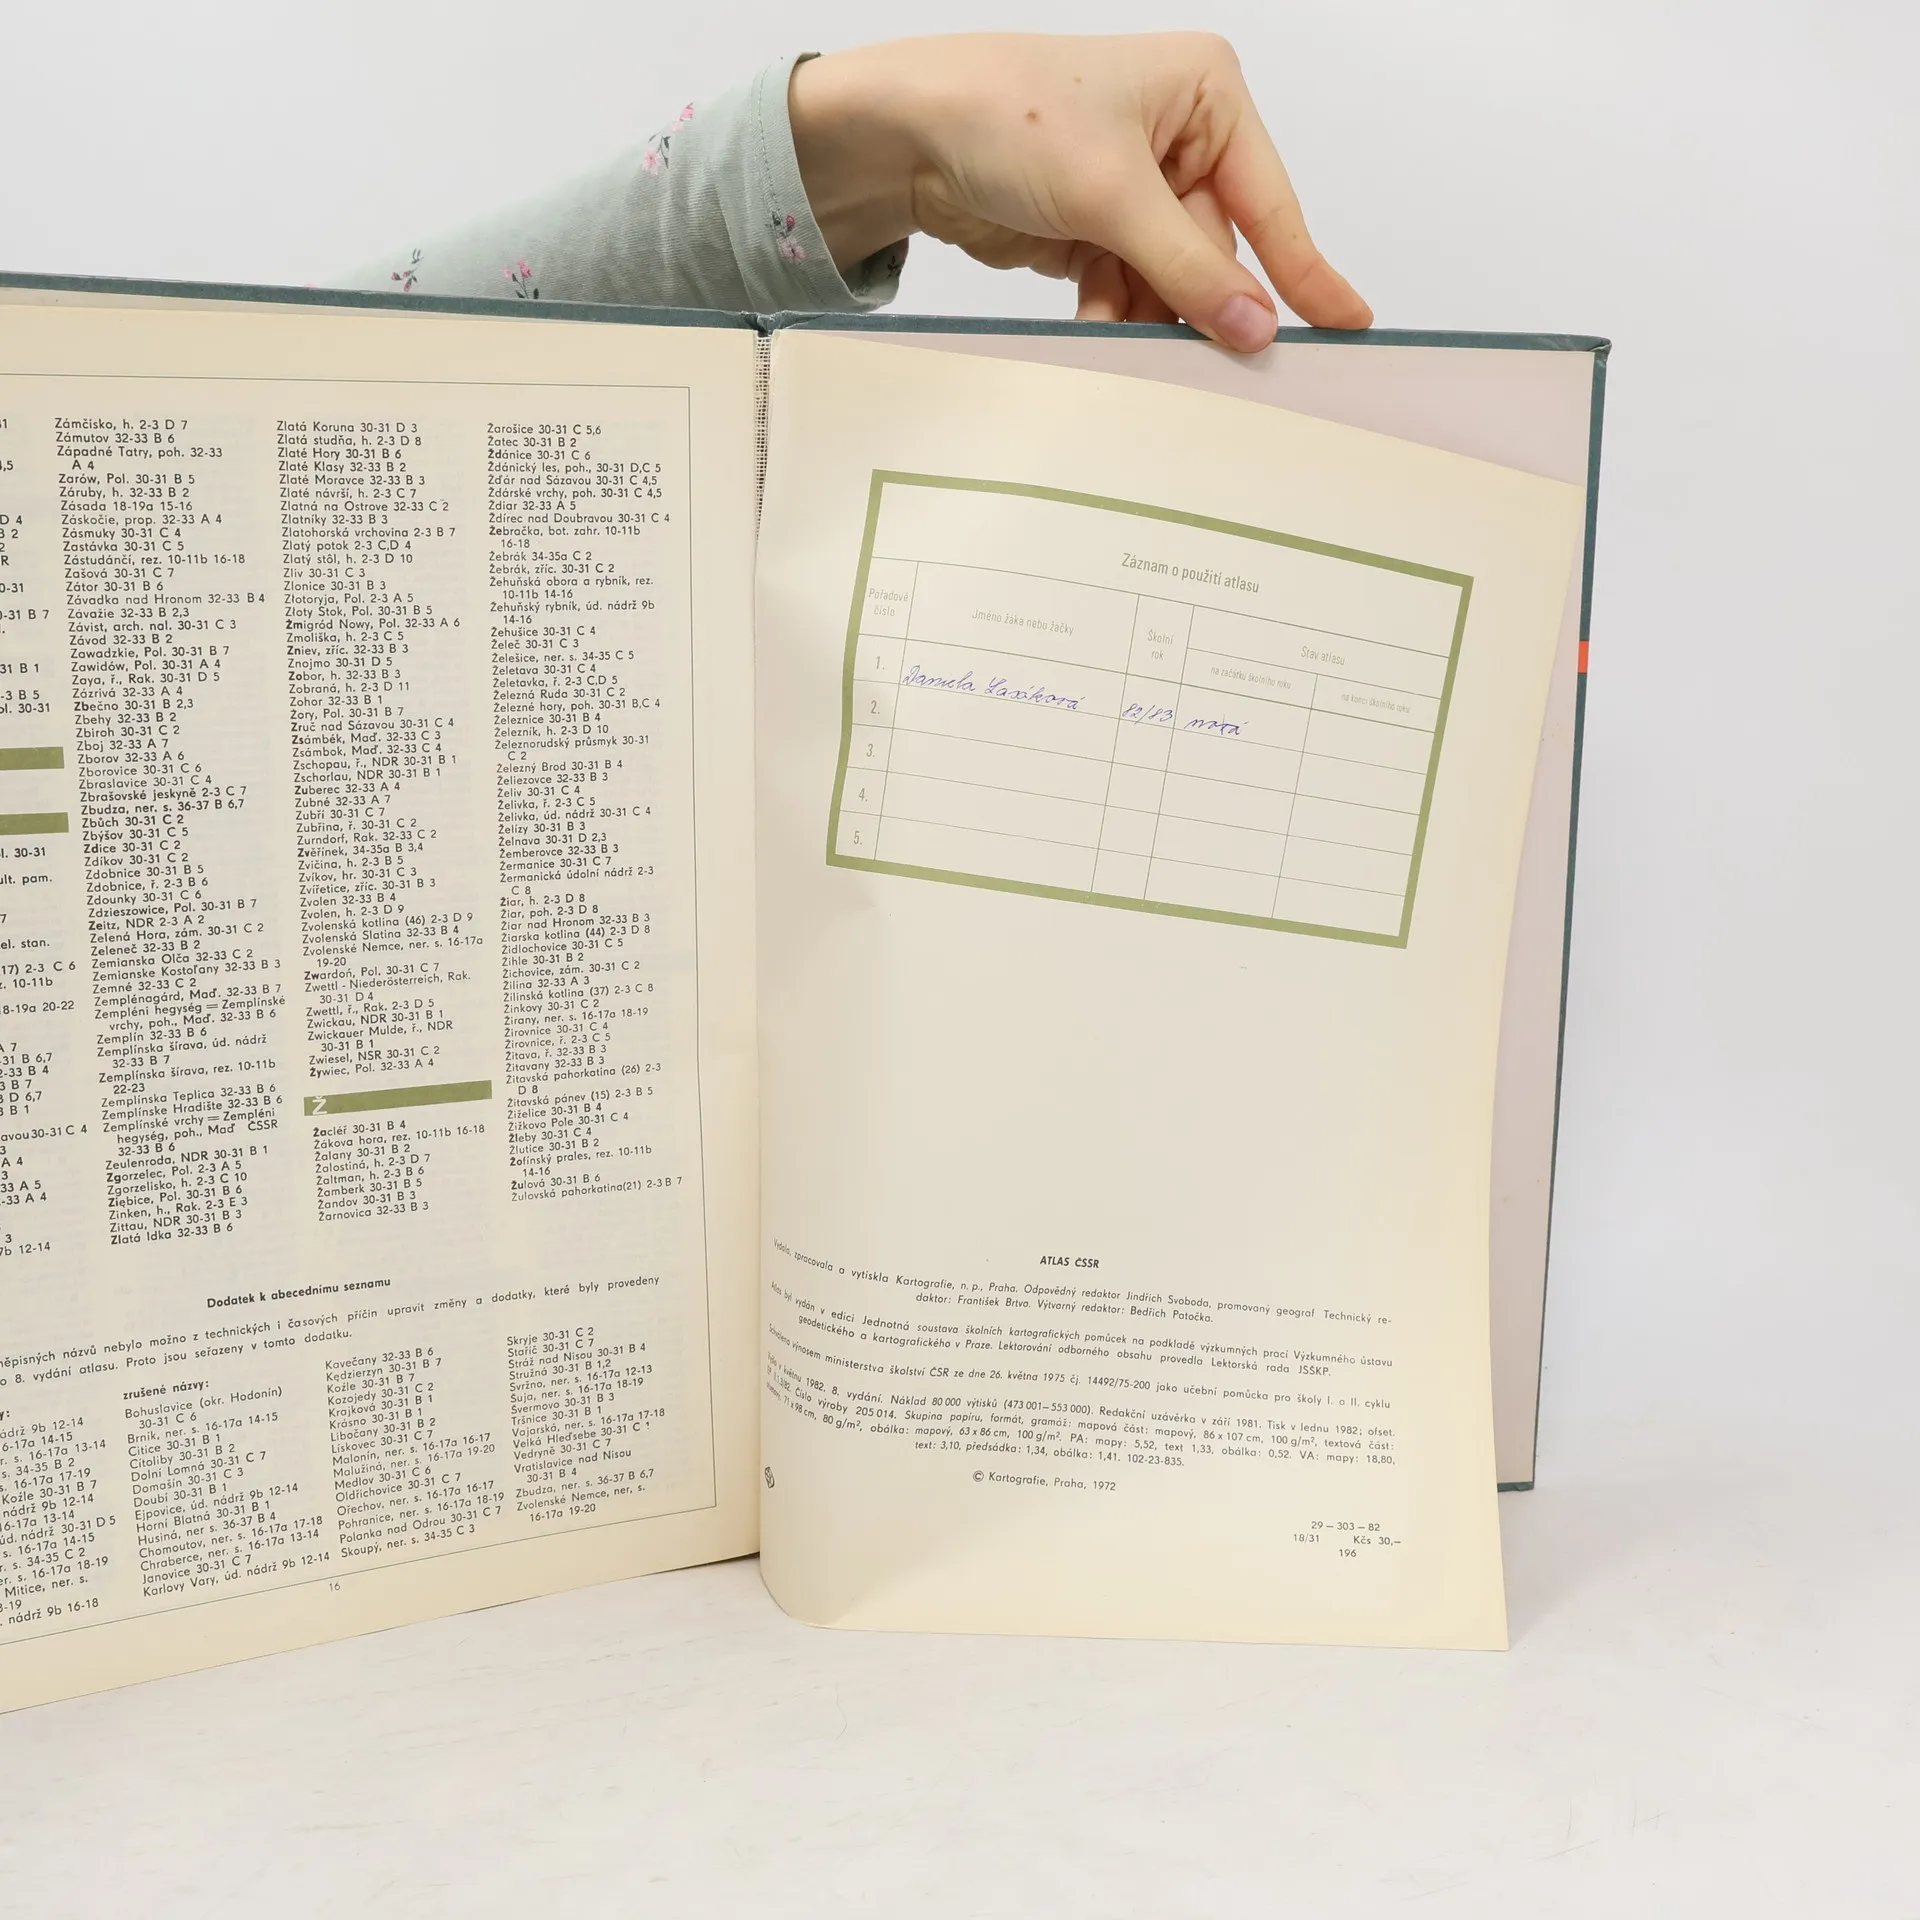 Zámčisko, h. 2-3 D 7
Zámutov 32-33 B 6
Západné Tatry, poh. 32-33
A 4
Zarów, Pol. 30-31 B 5
Záruby, h. 32-33 B 2
Zásada 18-19a 15-16
Záskočie, prop. 32-33 A 4
Zásmuky 30-31 C 4
Zastávka 30-31 C 5
Zástudánčí, rez. 10-11b 16-18
Zašová 30-31 C 7
Zátor 30-31 B 6
Závadka nad Hronom 32-33 B 4
Závažie 32-33 B 2,3
Závist, arch. nal. 30-31 C 3
Závod 32-33 B 2
Zawadzkie, Pol. 30-31 B 7
Zawidów, Pol. 30-31 A 4
Zaya, ř., Rak. 30-31 D 5
Zázrivá 32-33 A 4
Zbečno 30-31 B 2,3
Zbehy 32-33 B 2
Zbiroh 30-31 C 2
Zboj 32-33 A 7
Zborov 32-33 A 6
Zborovice 30-31 C 6
Zbraslavice 30-31 C 4
Zbrašovské jeskyně 2-3 C 7
Zbudza, ner. s. 36-37 B 6,7
Zbůch 30-31 C 2
Zbýšov 30-31 C 5
Zdice 30-31 C 2
Zdíkov 30-31 C 2
Zdobnice 30-31 B 5
Zdobnice, ř. 2-3 B 6
Zdounky 30-31 C 6
Zdzieszowice, Pol. 30-31 B 7
Zeitz, NDR 2-3 A 2
Zelená Hora, zám. 30-31 C 2
Zeleneč 32-33 B 2
Zemianska Olča 32-33 C 2
Zemianske Kostoľany 32-33 B 3
Zemné 32-33 C 2
Zemplénagárd, Maď. 32-33 B 7
Zempléni hegység = Zemplínské
vrchy, poh., Maď. 32-33 B 6
Zemplín 32-33 B 6
Zemplínska šírava, úd. nádrž
32-33 B 7
Zemplínska šírava, rez. 10-11b
22-23
Zemplínska Teplica 32-33 B 6
Zemplínske Hradište 32-33 B 6
Zemplínské vrchy = Zempléni
hegység, poh., Maď ČSSR
32-33 B 6
Zeulenroda, NDR 30-31 B 1
Zgorzelec, Pol. 2-3 A 5
Zgorzelisko, h. 2-3 C 10
Ziębice, Pol. 30-31 B 6
Zinken, h., Rak. 2-3 E 3
Zittau, NDR 30-31 B 3
Zlatá Idka 32-33 B 6
Zlatá Koruna 30-31 D 3
Zlatá studňa, h. 2-3 D 8
Zlaté Hory 30-31 B 6
Zlaté Klasy 32-33 B 2
Zlaté Moravce 32-33 B 3
Zlaté návrší, h. 2-3 C 7
Zlatná na Ostrove 32-33 C 2
Zlatníky 32-33 B 3
Zlatohorská vrchovina 2-3 B 7
Zlatý potok 2-3 C,D 4
Zlatý stôl, h. 2-3 D 10
Zliv 30-31 C 3
Zlonice 30-31 B 3
Zlotoryja, Pol. 2-3 A 5
Zloty Stok, Pol. 30-31 B 5
Żmigród Nowy, Pol. 32-33 A 6
Zmoliška, h. 2-3 C 5
Zniev, zříc. 32-33 B 3
Znojmo 30-31 D 5
Zobor, h. 32-33 B 3
Zobraná, h. 2-3 D 11
Zohor 32-33 B 1
Żory, Pol. 30-31 B 7
Zruč nad Sázavou 30-31 C 4
Zsámbék, Maď. 32-33 C 3
Zsámbok, Maď. 32-33 C 4
Zschopau, ř., NDR 30-31 B 1
Zschorlau, NDR 30-31 B 1
Zuberec 32-33 A 4
Zubné 32-33 A 7
Zubří 30-31 C 7
Zubřina, ř. 30-31 C 2
Zurndorf, Rak. 32-33 C 2
Zvěřínek, 34-35a B 3,4
Zvičina, h. 2-3 B 5
Zvíkov, hr. 30-31 C 3
Zvířetice, zříc. 30-31 B 3
Zvolen 32-33 B 4
Zvolen, h. 2-3 D 9
Zvolenská kotlina (46) 2-3 D 9
Zvolenská Slatina 32-33 B 4
Zvolenské Nemce, ner. s. 16-17a
19-20
Zwardoń, Pol. 30-31 C 7
Zwettl - Niederösterreich, Rak.
30-31 D 4
Zwettl, ř., Rak. 2-3 D 5
Zwickau, NDR 30-31 B 1
Zwickauer Mulde, ř., NDR
30-31 B 1
Zwiesel, NSR 30-31 C 2
Żywiec, Pol. 32-33 A 4
Ž
Žacléř 30-31 B 4
Žákova hora, rez. 10-11b 16-18
Žalany 30-31 B 2
Žalostiná, h. 2-3 D 7
Žaltman, h. 2-3 B 6
Žamberk 30-31 B 5
Žandov 30-31 B 3
Žarnovica 32-33 B 3
Žarošice 30-31 C 5,6
Žatec 30-31 B 2
Ždánice 30-31 C 6
Ždánický les, poh., 30-31 D,C 5
Žďár nad Sázavou 30-31 C 4,5
Žďárské vrchy, poh. 30-31 C 4,5
Ždiar 32-33 A 5
Ždírec nad Doubravou 30-31 C 4
Žebračka, bot. zahr. 10-11b
16-18
Žebrák 34-35a C 2
Žebrák, zříc. 30-31 C 2
Žehuňská obora a rybník, rez.
10-11b 14-16
Žehuňský rybník, úd. nádrž 9b
14-16
Žehušice 30-31 C 4
Želeč 30-31 C 3
Želešice, ner. s. 34-35 C 5
Želetava 30-31 C 4
Želetavka, ř. 2-3 C,D 5
Železná Ruda 30-31 C 2
Železné hory, poh. 30-31 B,C 4
Železnice 30-31 B 4
Železník, h. 2-3 D 10
Železnorudský průsmyk 30-31
C 2
Železný Brod 30-31 B 4
Želiezovce 32-33 B 3
Želiv 30-31 C 4
Želivka, ř. 2-3 C 5
Želivka, úd. nádrž 30-31 C 4
Želízy 30-31 B 3
Želnava 30-31 D 2,3
Žemberovce 32-33 B 3
Žermanice 30-31 C 7
Žermanická údolní nádrž 2-3
C 8
Žiar, h. 2-3 D 8
Žiar, poh. 2-3 D 8
Žiar nad Hronom 32-33 B 3
Žiarska kotlina (44) 2-3 D 8
Židlochovice 30-31 C 5
Žihle 30-31 B 2
Žichovice, zám. 30-31 C 2
Žilina 32-33 A 3
Žilinská kotlina (37) 2-3 C 8
Žinkovy 30-31 C 2
Žirany, ner. s. 16-17a 18-19
Žirovnice 30-31 C 4
Žirovnice, ř. 2-3 C 5
Žitava, ř. 32-33 B 3
Žitavany 32-33 B 3
Žitavská pahorkatina (26) 2-3
D 8
Žitavská pánev (15) 2-3 B 5
Žiželice 30-31 B 4
Žižkovo Pole 30-31 C 4
Žleby 30-31 C 4
Žlutice 30-31 B 2
Žofínský prales, rez. 10-11b
14-16
Žulová 30-31 B 6
Žulovská pahorkatina(21) 2-3 B 7
Dodatek k abecednímu seznamu
názvů nebylo možno z technických i časových příčin upravit změny a dodatky, které byly provedeny
8. vydání atlasu. Proto jsou seřazeny v tomto dodatku.
zrušené názvy:
Bohuslavice (okr. Hodonín)
30-31 C 6
Brník, ner. s. 16-17a 14-15
Citice 30-31 B 1
Cítoliby 30-31 B 2
Dolní Lomná 30-31 C 7
Domašín 30-31 C 3
Doubí 30-31 B 1
Ejpovice, úd. nádrž 9b 12-14
Horní Blatná 30-31 B 1
Husiná, ner s. 36-37 B 4
Chomoutov, ner s. 16-17a 17-18
Chraberce, ner s. 16-17a 13-14
Janovice 30-31 C 7
Karlovy Vary, úd. nádrž 9b 12-14
Kavečany 32-33 B 6
Kędzierzyn 30-31 B 7
Koźle 30-31 B 7
Kozojedy 30-31 C 2
Krajková 30-31 B 1
Krásno 30-31 B 1
Libočany 30-31 B 2
Lískovec 30-31 C 7
Malonín, ner s. 16-17a 16-17
Malužiná, ner s. 16-17a 19-20
Medlov 30-31 C 6
Oldřichovice 30-31 C 7
Ořechov, ner s. 16-17a 16-17
Pohranice, ner s. 16-17a 18-19
Polanka nad Odrou 30-31 C 7
Skoupý, ner s. 34-35 C 3
Skryje 30-31 C 2
Staříč 30-31 C 7
Stráž nad Nisou 30-31 B 4
Stružná 30-31 B 1,2
Svržno, ner s. 16-17a 12-13
Šuja, ner s. 16-17a 18-19
Švermovo 30-31 B 3
Tršnice 30-31 B 1
Vajarská, ner s. 16-17a 17-18
Velká Hleďsebe 30-31 C
Vedryně 30-31 C 7
Vratislavice nad Nisou
30-31 B 4
Zbudza, ner s. 36-37 B 6,7
Zvolenské Nemce, ner, s.
16-17a 19-20
16
Záznam o použití atlasu
Pořadové číslo
Jméno žáka nebo žačky
Školní rok
Stav atlasu
na začátku školního roku
na konci školního roku
1. Daniela 82/83 nová
2.
3.
4.
5.
ATLAS ČSSR
Vydala, zpracovala a vytiskla Kartografie, n. p., Praha. Odpovědný redaktor Jindřich Svoboda, promovaný geograf Technický re-
daktor: František Brtva. Výtvarný redaktor: Bedřich Patočka.
Atlas byl vydán v edici Jednotná soustava školních kartografických pomůcek na podkladě výzkumných prací Výzkumného ústavu
geodetického a kartografického v Praze. Lektorování odborného obsahu provedla Lektorská rada JSŠKP.
Schváleno výnosem ministerstva školství ČSR ze dne 26. května 1975 čj. 14492/75-200 jako učební pomůcka pro školy I. a II. cyklu
v květnu 1982. 8. vydání. Náklad 80 000 výtisků (473 001–553 000). Redakční uzávěrka v září 1981. Tisk v lednu 1982; ofset.
Číslo výroby 205 014. Skupina papíru, formát, gramáž: mapová část: mapový, 86 x 107 cm, 100 g/m², textová část:
71 x 98 cm, 80 g/m², obálka: mapový, 63 x 86 cm, 100 g/m². PA: mapy: 5,52, text 1,33, obálka: 0,52. VA: mapy: 18,80,
text: 3,10, předsádka: 1,34, obálka: 1,41. 102-23-835.
© Kartografie, Praha, 1972
29 – 303 – 82
18/31 Kčs 30,–
196